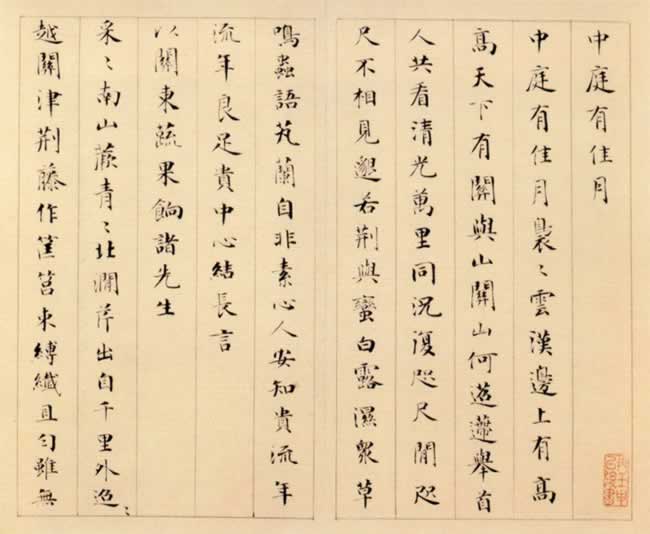 中庭有佳月
中庭有佳月裊〻雲漢邊上有高
高天下有關與山關山何迢遰舉首
人共看清光萬里同況復咫尺閒咫
尺不相見邈若荆與蠻白露濕衆草
鳴蟲語芄蘭自非素心人安知貴流年
流年良足貴中心結長言
以關東蔬果餉諸先生
采〻南山蕨青〻北澗芹出自千里外迢〻
越關津荆藤作筐筥束縛纖且勻雖無